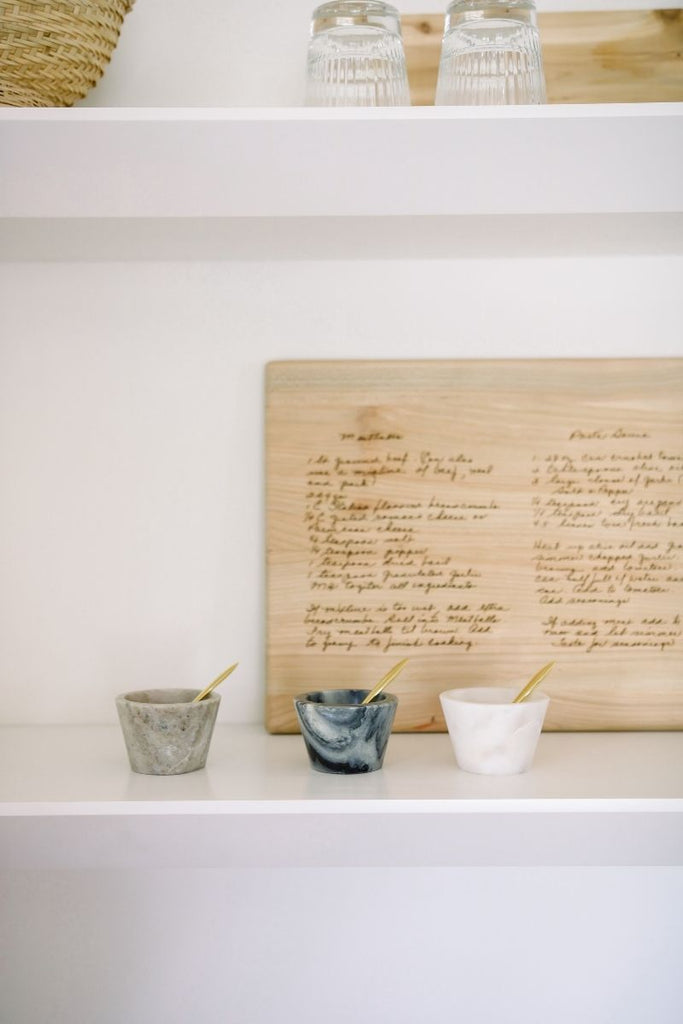 Meatballs
1 lb ground beef. You also
use a mixture of beef, veal
and pork
2 eggs
1 C Italian flavored breadcrumbs
½ C grated romano cheese or
Parmesan cheese
teaspoon salt
teaspoon pepper
1 teaspoon dried basil
1 teaspoon granulated garlic
Mix together all ingredients
If mixture is too wet, add extra
breadcrumbs Roll into Meatballs
Fry meatballs til brown Add
to gravy to finish cooking
Pasta Sauce
1 28 oz can crushed
2 tablespoons olive
large cloves of garlic
Salt & Pepper
teaspoon dry
teaspoon dry basil
4-5 leaves fresh
Heat up olive oil and
simmer chopped garlic
add tomatoes
can half full of water
can. Add to tomatoes
Add seasonings
If adding meat add
now and let simmer
Taste for seasonings